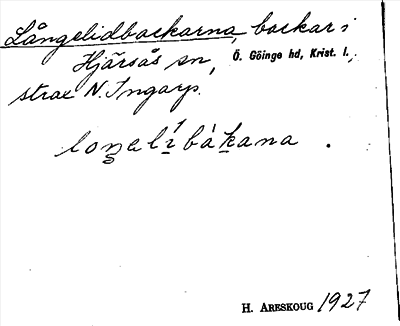 Långelidbackarna, backar i
Hjärsås sn, Ö. Göinge hd, Krist. l.,
strax N. Ingarp.
loŋelíbàkana .
H. ARESKOUG 1927